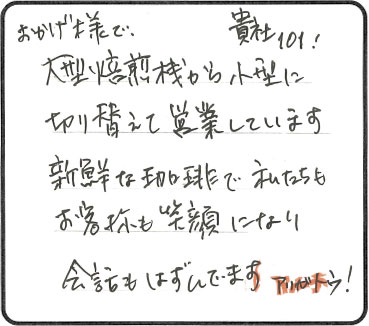 おかげ様で、 貴社101!
大型焙煎機から小型に
切り替えて営業しています
新鮮な珈琲で私たちも
お客様も笑顔になり
会話もはずんでます アリガトウ!